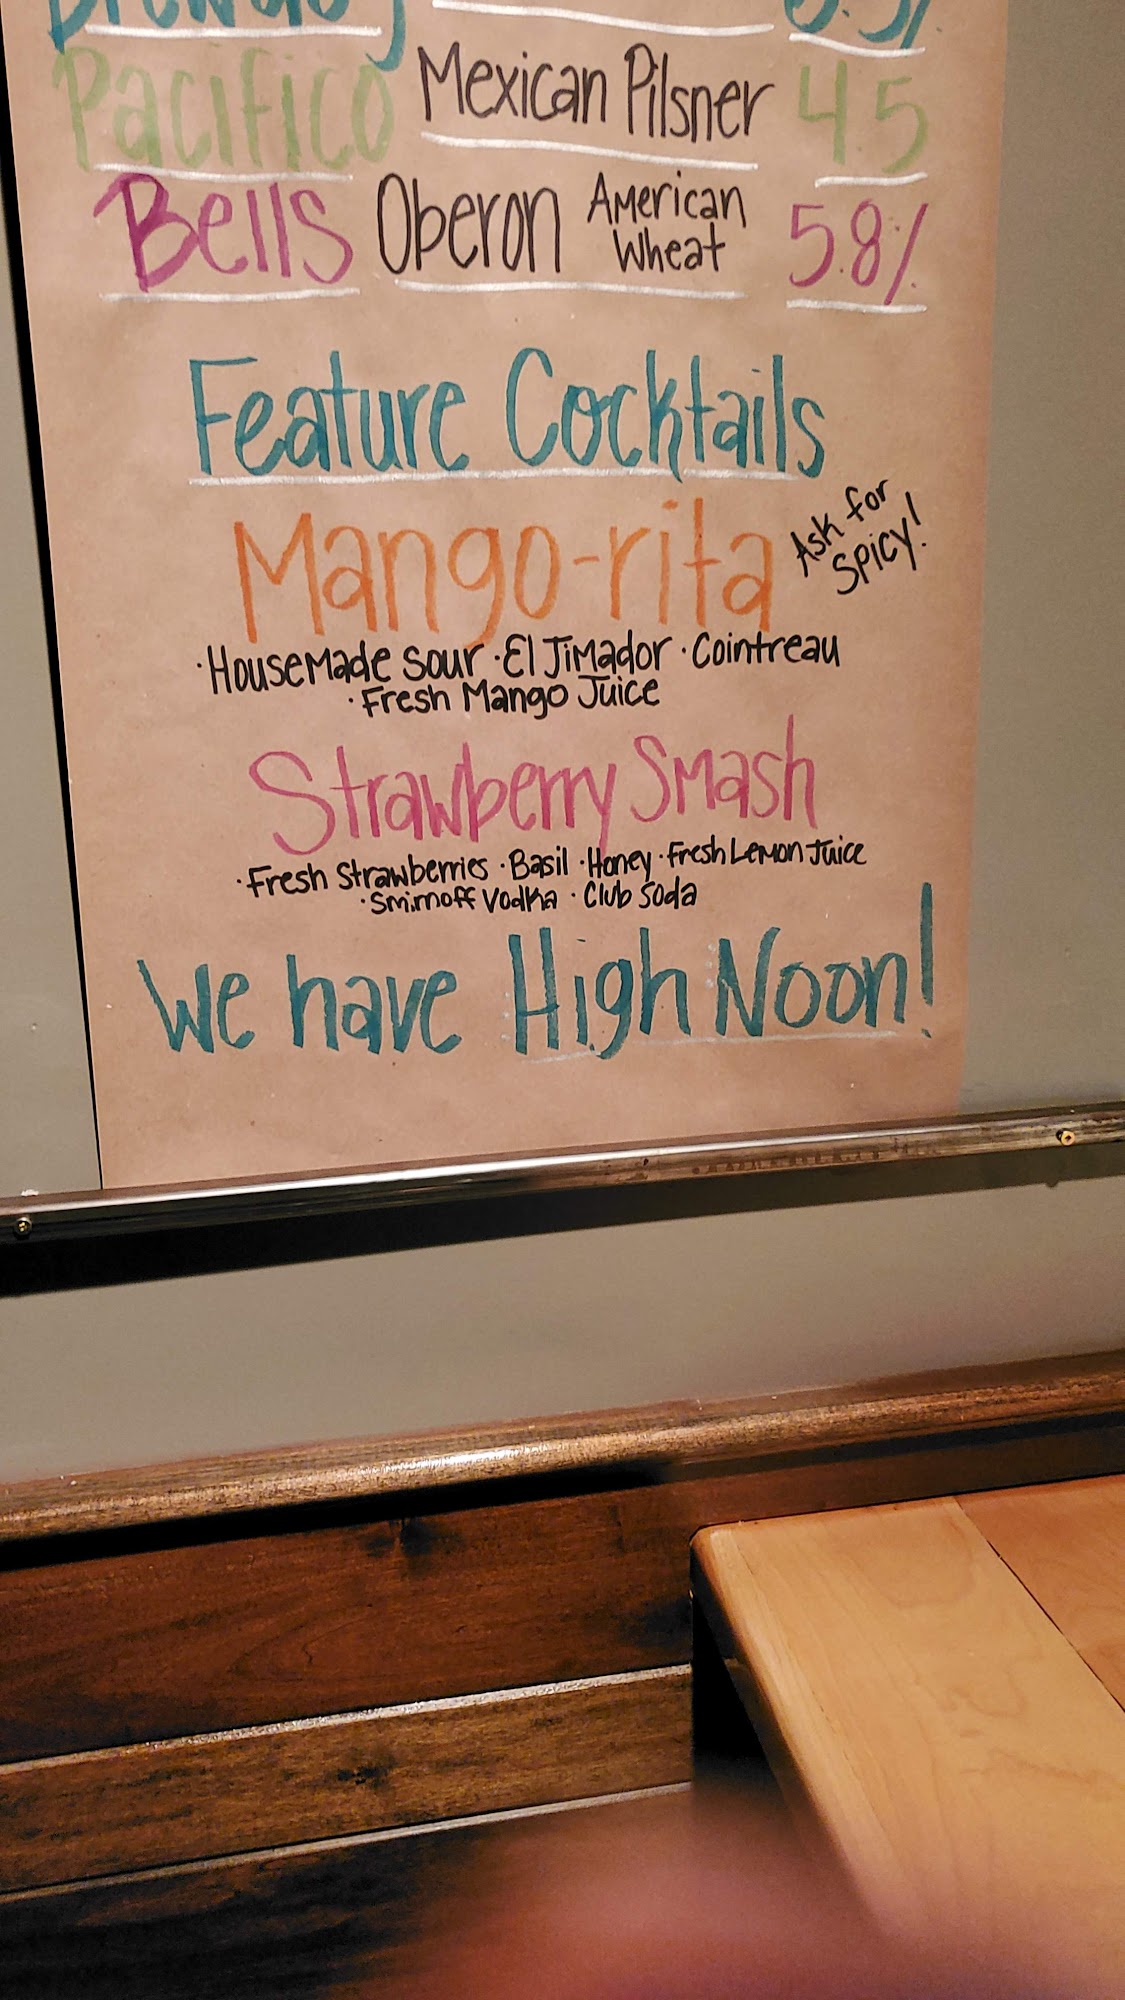 Pacifico Mexican Pilsner 45
Bells Oberon American Wheat 5.8%
Feature Cocktails
Mango-rita Ask for Spicy!
·Housemade sour ·El Jimador ·Cointreau
·Fresh Mango Juice
Strawberry Smash
·Fresh Strawberries ·Basil ·Honey ·Fresh Lemon Juice
·Smirnoff Vodka ·Club Soda
We have High Noon!